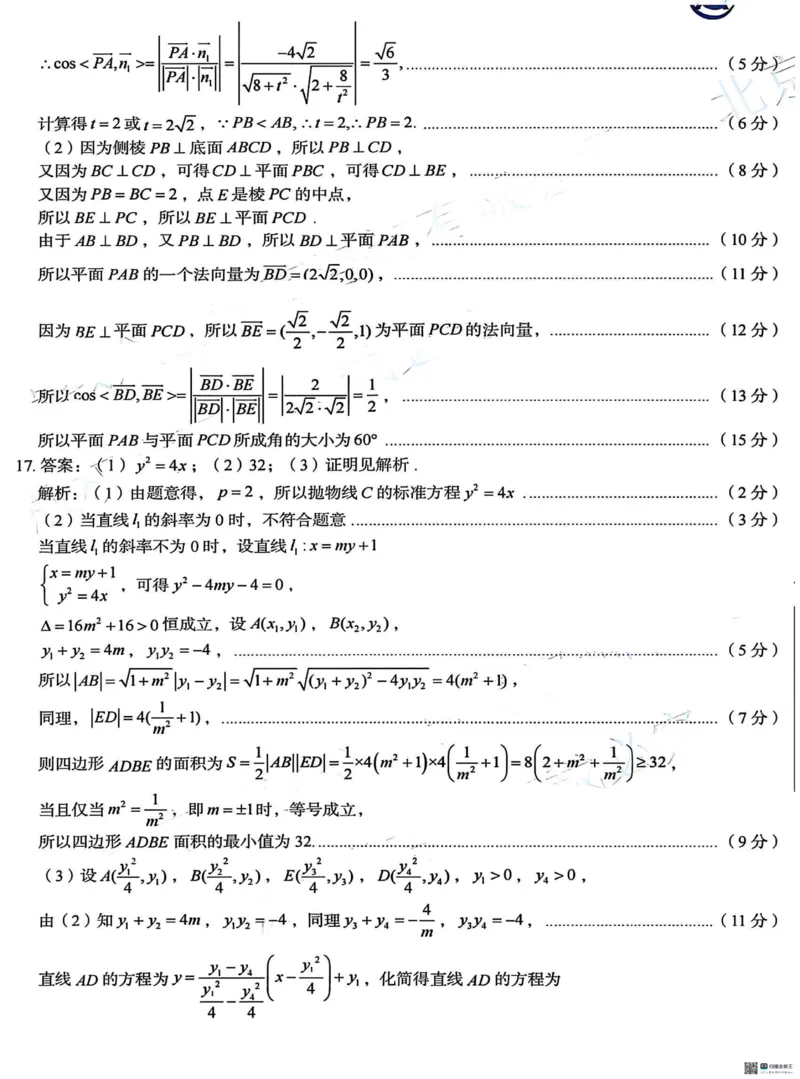 ∴cos<PA,n₁>=|PA·n₁/(|PA|·|n₁|)|=|−4√2/(√(8+t²)·√(2+8/t²))|=√6/3,……（5分）
计算得t=2或t=2√2，∵PB<AB,∴t=2,∴PB=2.……（6分）
（2）因为侧棱PB⊥底面ABCD，所以PB⊥CD，
又因为BC⊥CD，可得CD⊥平面PBC，可得CD⊥BE，……（8分）
又因为PB=BC=2，点E是棱PC的中点，
所以BE⊥PC，所以BE⊥平面PCD．
由于AB⊥BD，又PB⊥BD，所以BD⊥平面PAB，……（10分）
所以平面PAB的一个法向量为BD=(2√2,0,0)，……（11分）
因为BE⊥平面PCD，所以BE=(√2/2,−√2/2,1)为平面PCD的法向量，……（12分）
所以cos<BD,BE>=|BD·BE/(|BD|·|BE|)|=|2/(2√2·√2)|=1/2，……（13分）
所以平面PAB与平面PCD所成角的大小为60°……（15分）
17.答案：（1）y²=4x；（2）32；（3）证明见解析．
解析：（1）由题意得，p=2，所以抛物线C的标准方程y²=4x．……（2分）
（2）当直线l₁的斜率为0时，不符合题意……（3分）
当直线l₁的斜率不为0时，设直线l₁:x=my+1
{x=my+1, y²=4x，可得y²−4my−4=0，
Δ=16m²+16>0恒成立，设A(x₁,y₁)，B(x₂,y₂)，
y₁+y₂=4m，y₁y₂=−4，……（5分）
所以|AB|=√(1+m²)|y₁−y₂|=√(1+m²)√((y₁+y₂)²−4y₁y₂)=4(m²+1)，
同理，|ED|=4(1/m²+1)，……（7分）
则四边形ADBE的面积为S=1/2|AB||ED|=1/2×4(m²+1)×4(1/m²+1)=8(2+m²+1/m²)≥32，
当且仅当m²=1/m²，即m=±1时，等号成立，
所以四边形ADBE面积的最小值为32.……（9分）
（3）设A(y₁²/4,y₁)，B(y₂²/4,y₂)，E(y₃²/4,y₃)，D(y₄²/4,y₄)，y₁>0，y₄>0，
由（2）知y₁+y₂=4m，y₁y₂=−4，同理y₃+y₄=−4/m，y₃y₄=−4，……（11分）
直线AD的方程为y=(y₁−y₄)/(y₁²/4−y₄²/4)(x−y₁²/4)+y₁，化简得直线AD的方程为
扫描全能王